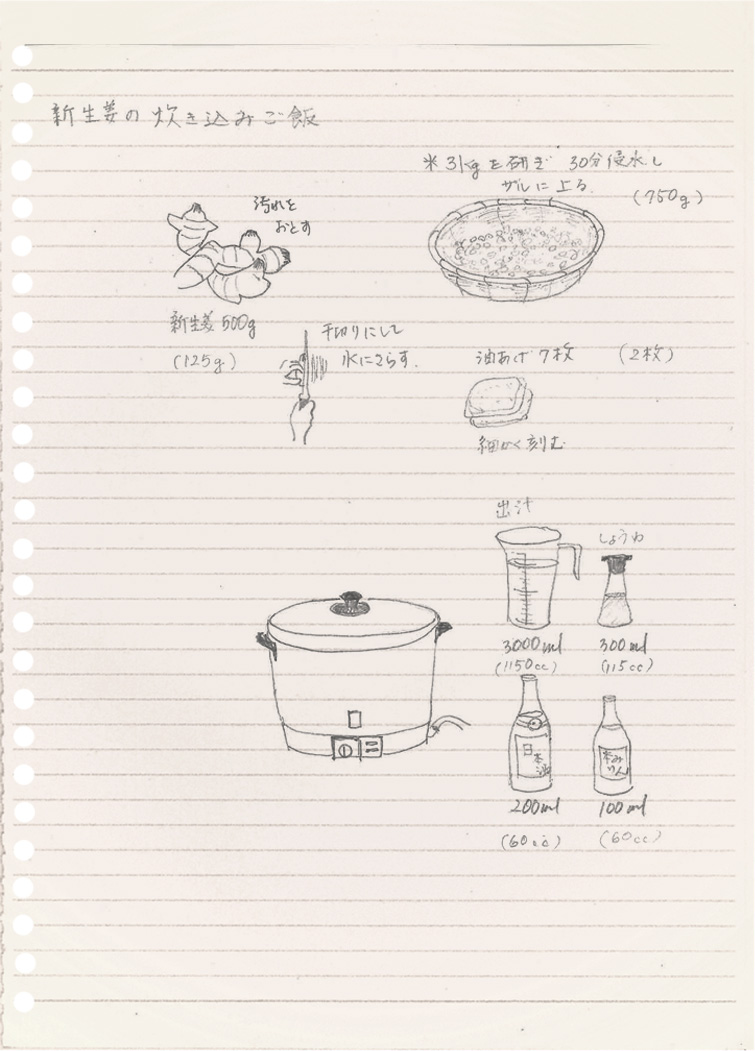 新生姜の炊き込みご飯
米3kgを研ぎ 30分浸水し
ザルに上る。
(750g)
汚れを
おとす
新生姜500g
(125g)
千切りにして
水にさらす.
油あげ7枚 (2枚)
細かく刻む
出汁
しょうゆ
3000ml 300ml
(1150cc) (115cc)
日本酒
本みりん
200ml 100ml
(60cc) (60cc)